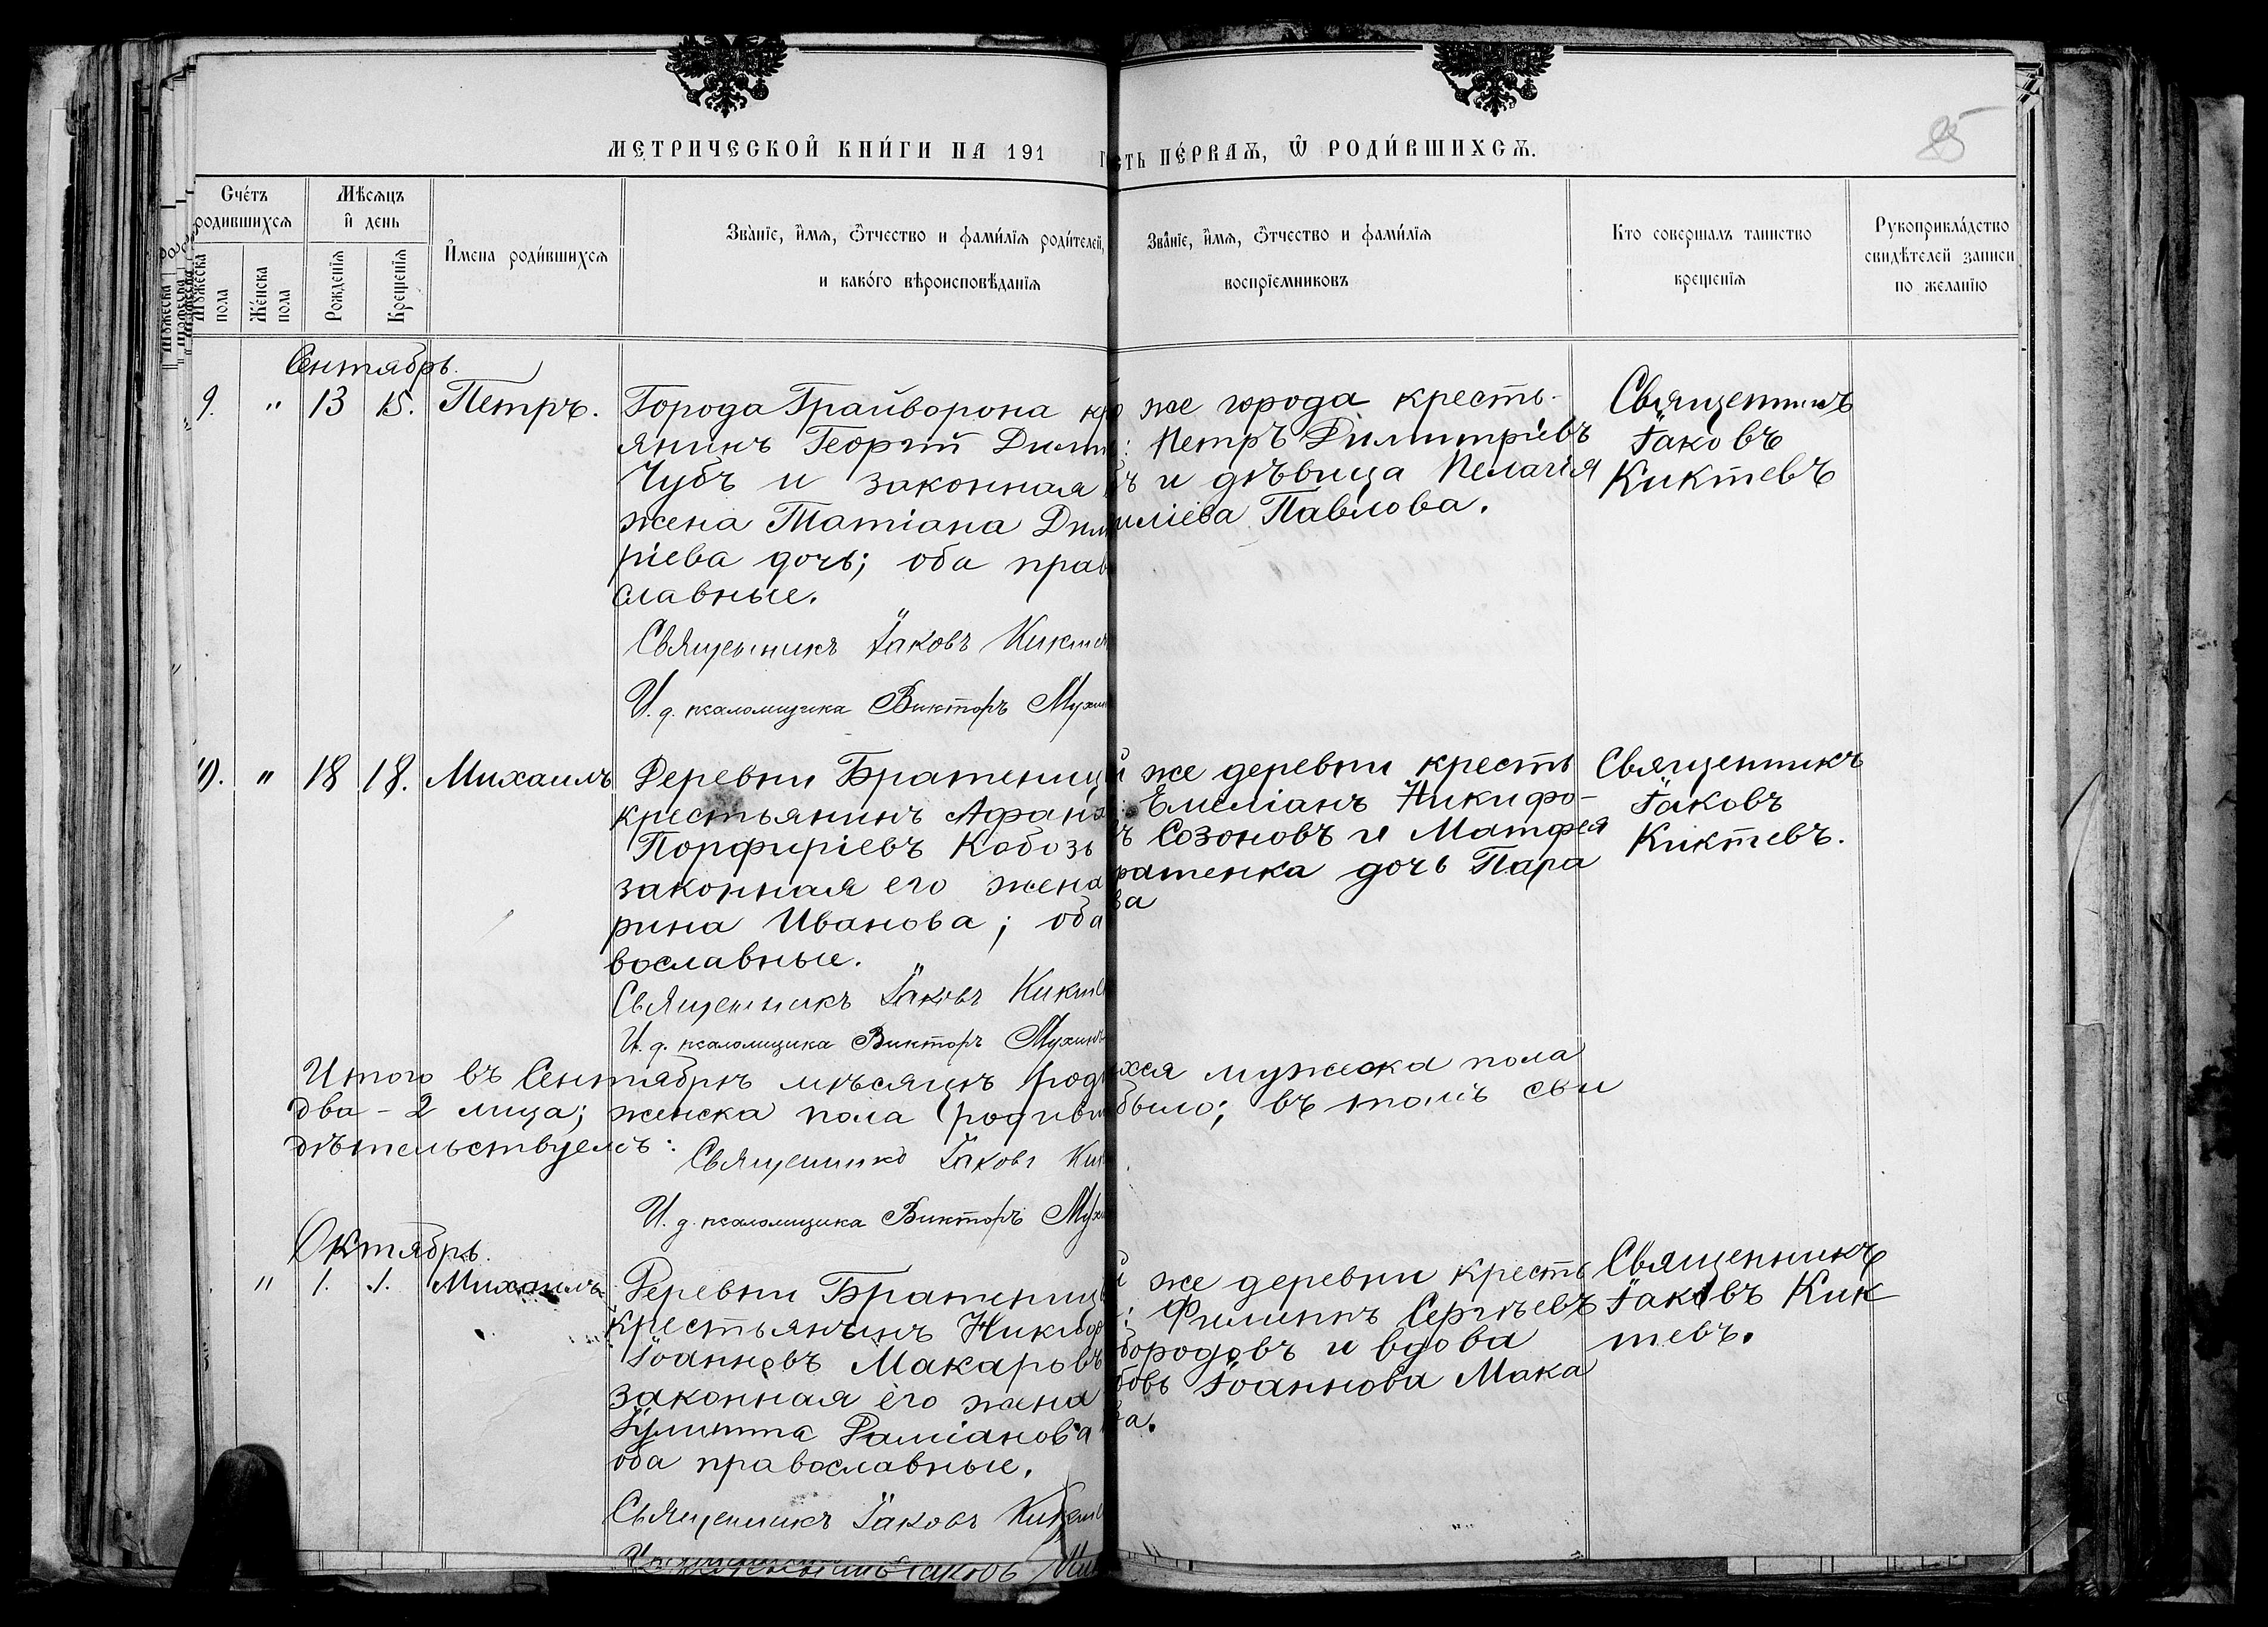 МЕТРИЧЕСКОЙ КНИ́ГИ НА 191
сть пе́рваѧ, Ѿ РОДИ́ВШИХСѦ.
85
Сче́тъ родившихсѧ
Мѣсѧцъ и҆ день
И҆мена роди́вшихсѧ
Зва́нїе, и҆мѧ, ѻ҆́тчество и фами́лїѧ роди́телей,
и како́го вѣроисповѣ́данїѧ
Зва́нїе, и҆мѧ, ѻ҆́тчество и фами́лїѧ
воспрїемниковъ
Кто совершалъ таинство
крещенїѧ
Рукоприкла́дство
свидѣ́телей записи
по желанїю
Мꙋжеска пола
Же́нска пола
Рожденїѧ
Крещенїѧ
Сентябрь.
9. " 13 15. Петръ.
Города Грайворона кр
янинъ Георгій Дими
Чубъ и законная
жена Татіана Дим
ріева дочь; оба прав
славные.
Священникъ Іаковъ Кикте
И. д. псаломщика Викторъ Мухин
же города кресть-
: Петръ Димитріевъ
ъ и дѣвица Пелагія
иліева Павлова.
Священникъ
Іаковъ
Киктевъ
10. " 18 18. Михаилъ
Деревни Братениц
крестьянинъ Афана
Порфиріевъ Кобозь
законная его жена
рина Иванова; оба
вославные.
Священникъ Іаковъ Кикте
И. д. псаломщика Викторъ Мухинъ
же деревни кресть
: Емеліанъ Никифо-
ъ Созоновъ и Матфея
ратенка дочь Пара
ва
Священникъ
Іаковъ
Киктевъ.
Итого въ Сентябрѣ мѣсяцѣ род ихся мужеска пола
два - 2 лица; женска пола (родивш было; въ томъ сви
дѣтельствуемъ:
Священникъ Іаковъ Кик
И. д. псаломщика Викторъ Мух
Октябрь.
" 1. 1. Михаилъ
Деревни Братениц
крестьянинъ Никифор
Іоанновъ Макаровъ
законная его жена
Іулитта Даміанова
оба православные.
Священникъ Іаковъ Кикте
же деревни кресть
: Филиппъ Сергѣевъ
бородовъ и вдова
бовь Іоаннова Мака
ва.
Священникъ
Іаковъ Кик
тевъ.